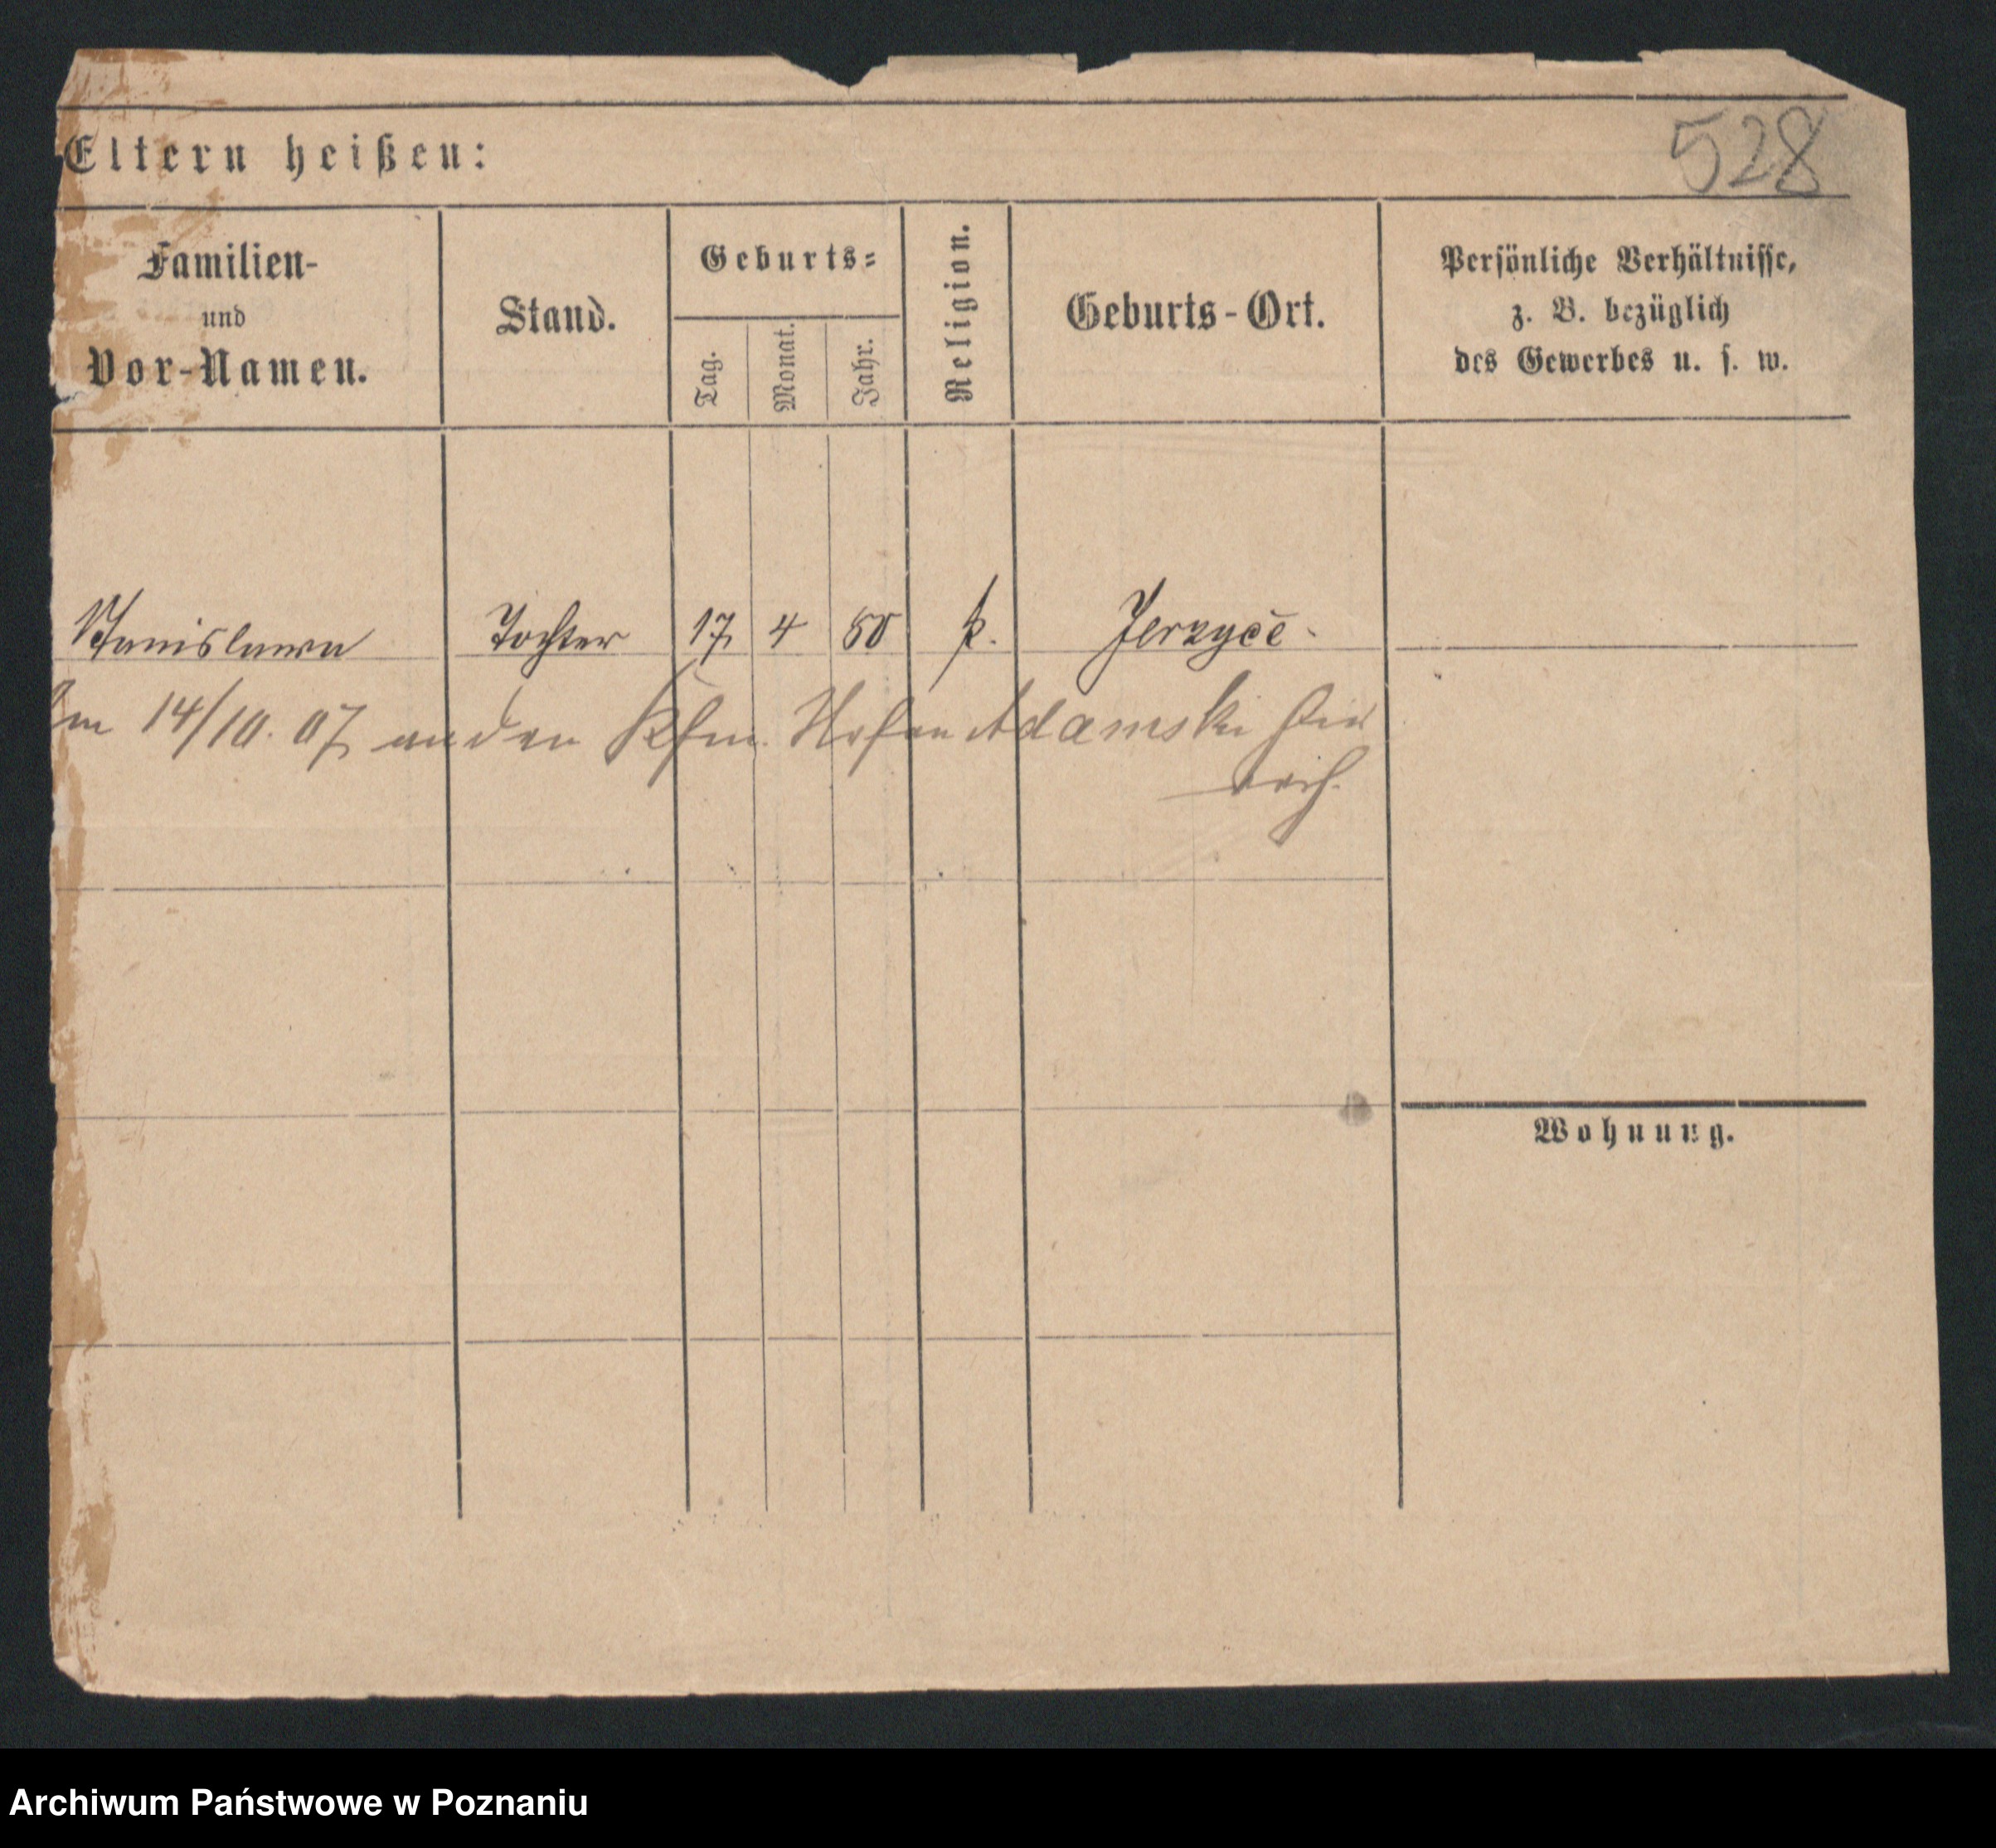 Eltern heißen:
528
Familien-
und
Vor-Namen.
Stand.
Geburts=
Tag.
Monat.
Jahr.
Religion.
Geburts-Ort.
Persönliche Verhältnisse,
z. B. bezüglich
des Gewerbes u. s. w.
Stanislawa Tochter 17 4 80 k. Jerzyce
Am 14/10. 07 an den Kfm. Adamski hier
verh.
Wohnung.
Archiwum Państwowe w Poznaniu